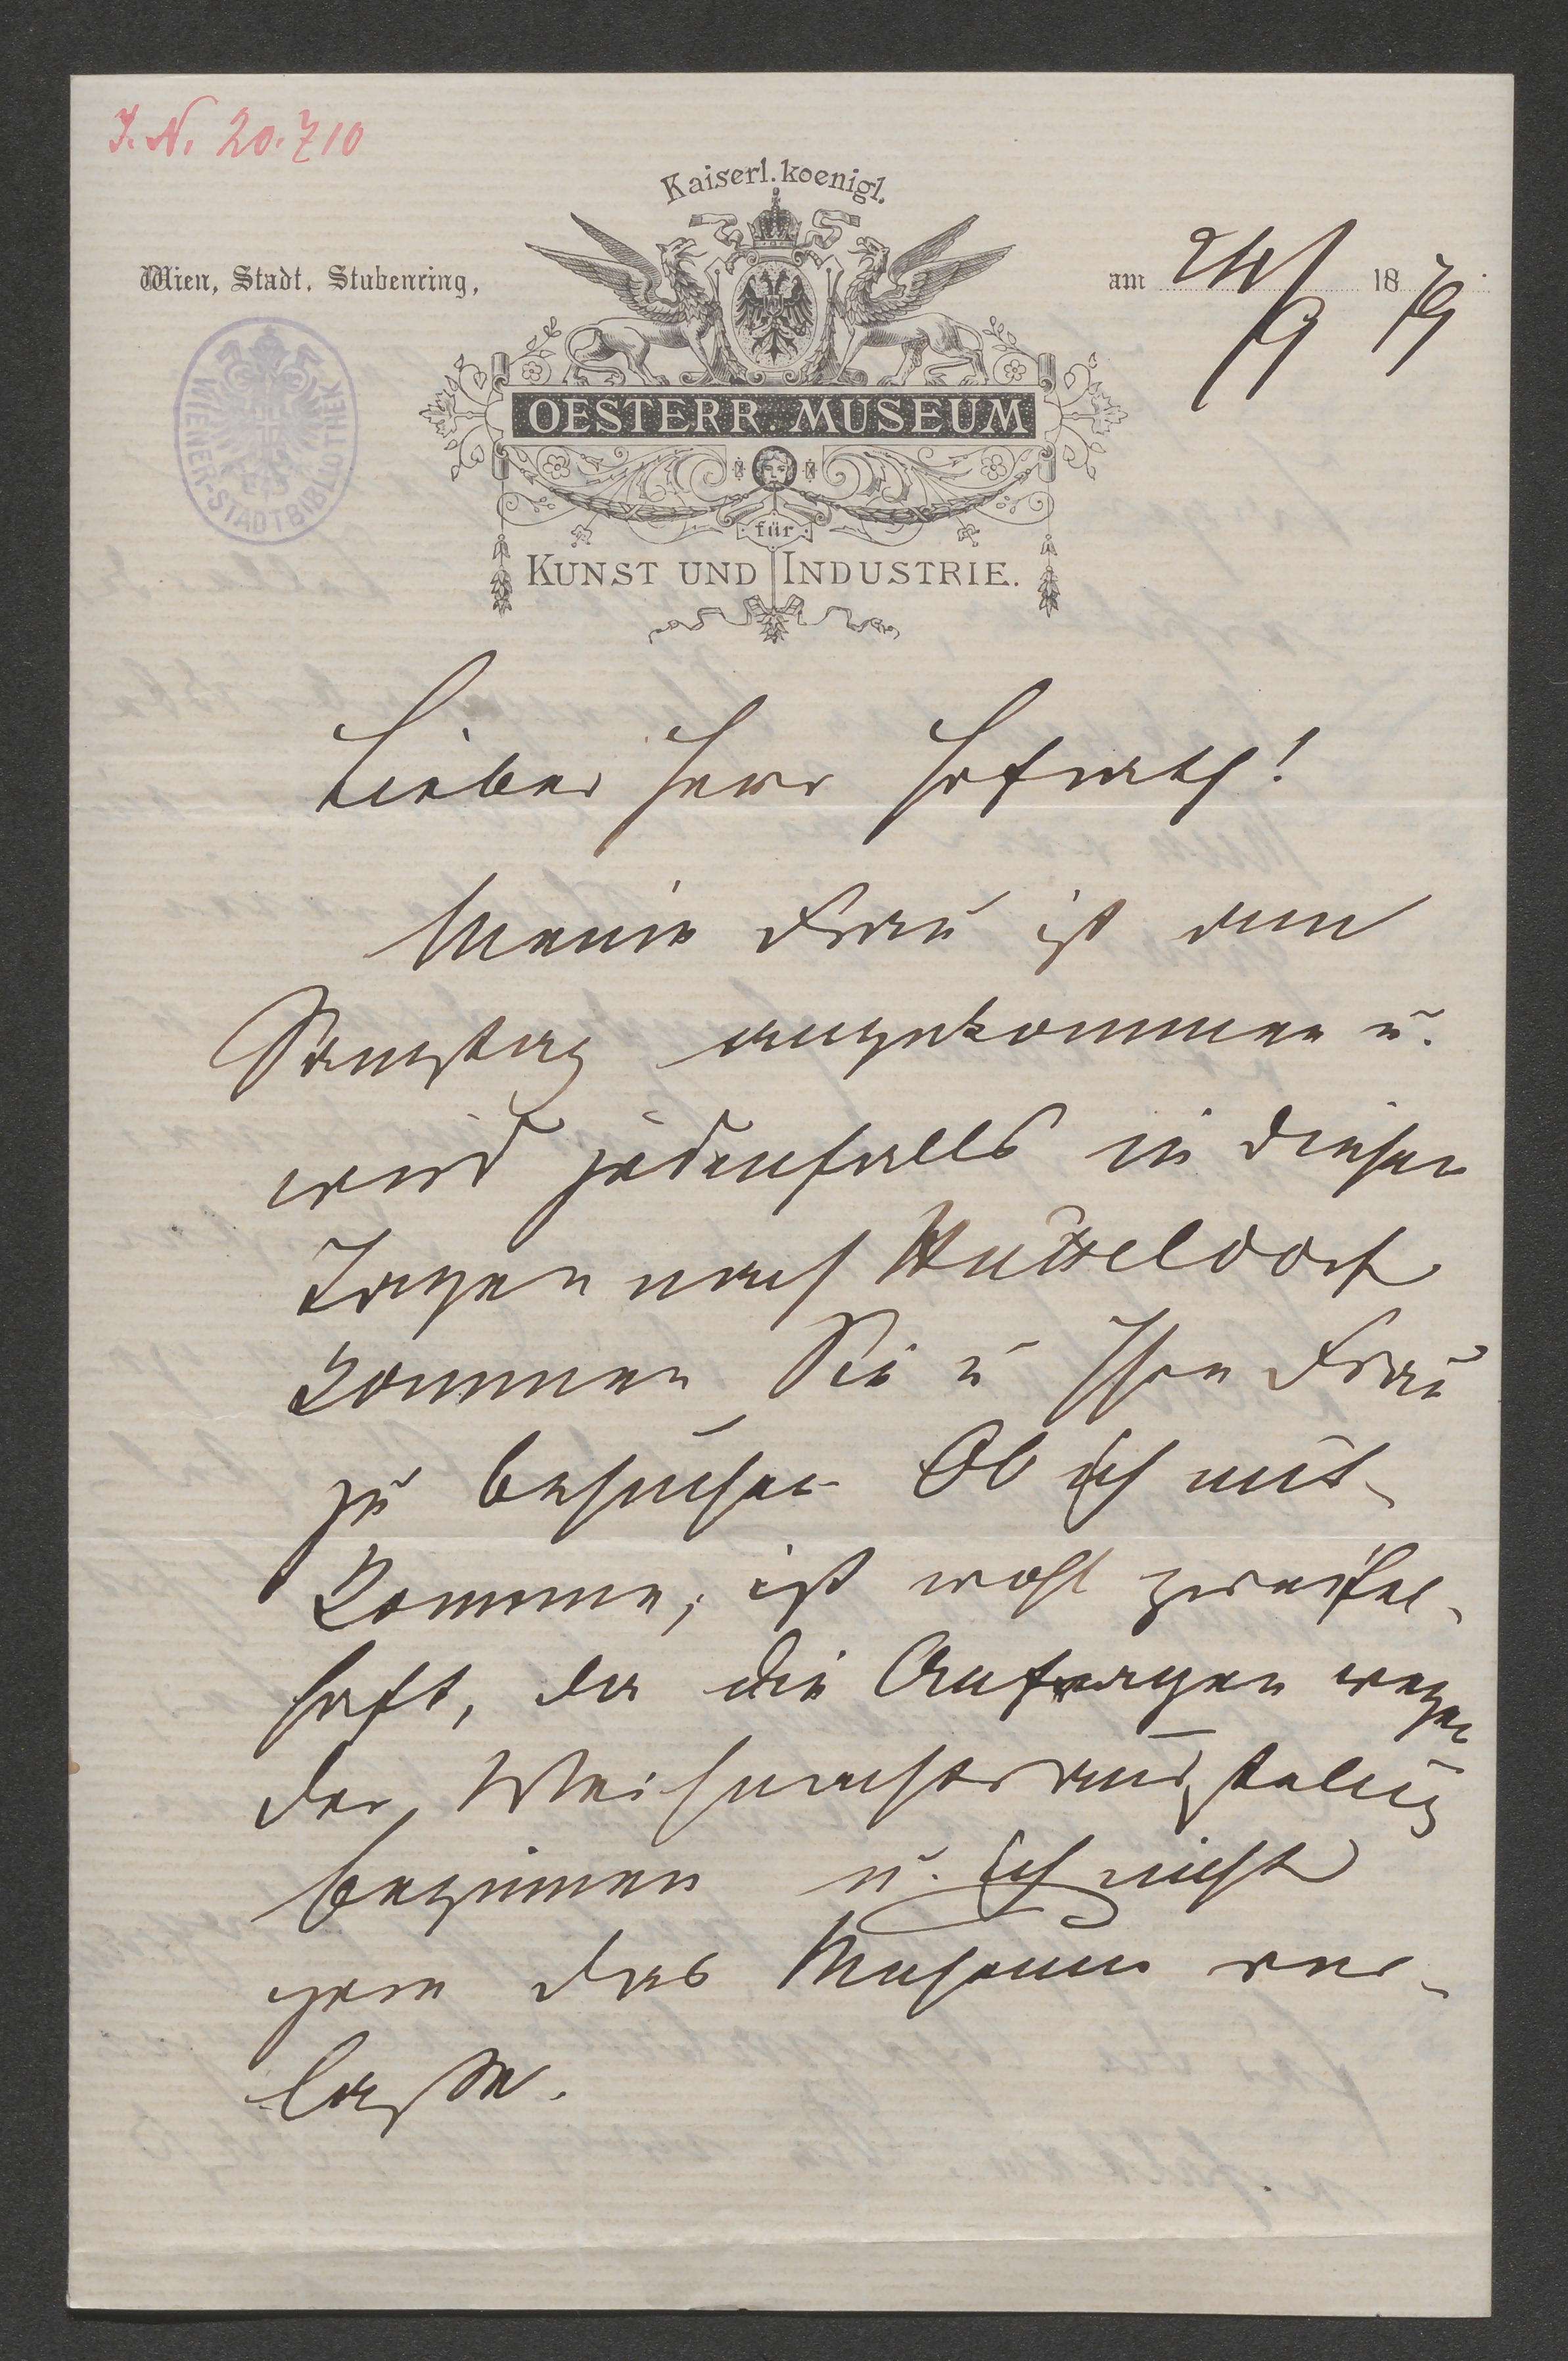 I. N. 20.710
Kaiserl. koenigl.
Wien, Stadt, Stubenring,
am 24/9 1879
WIENER-STADTBIBLIOTHEK
OESTERR. MUSEUM
für
KUNST UND INDUSTRIE.
Lieber Herr Hofrath!
Meine Frau ist am
Samstag angekommen u.
wird jedenfalls in diesen
Tagen nach Hütteldorf
kommen Sie u Ihre Frau
zu besuchen Ob ich mit-
komme, ist wohl zweifel-
haft, da die Anfragen wegen
der Weihnachtsausstellung
beginnen u. ich nicht
gern das Museum ver-
lasse.